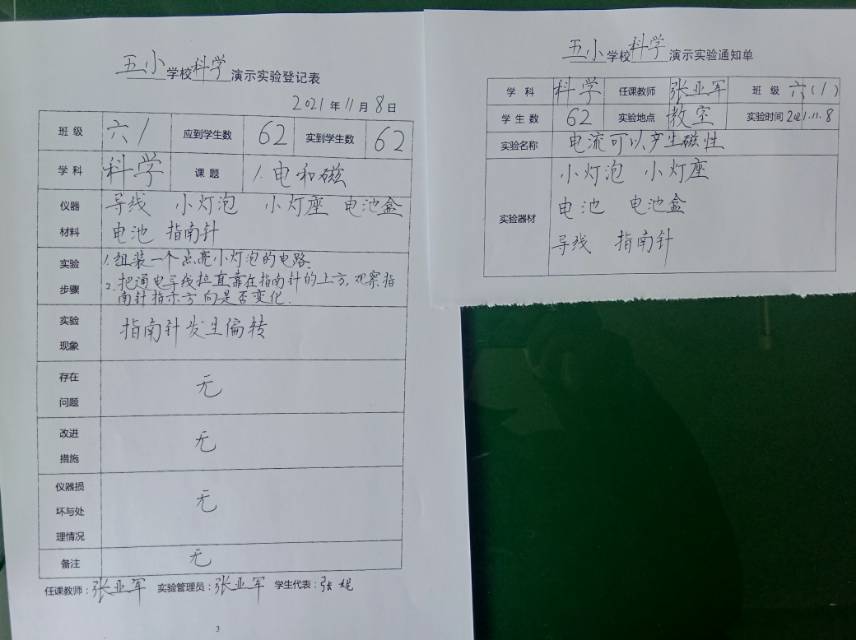 五小学校科学演示实验登记表
2021年11月8日
班级 六1 应到学生数 62 实到学生数 62
学科 科学 课题 1.电和磁
仪器材料 导线 小灯泡 小灯座 电池盒
电池 指南针
实验步骤 1.组装一个点亮小灯泡的电路.
2.把通电导线拉直靠在指南针的上方,观察指
南针指示方向是否变化.
实验现象 指南针发生偏转
存在问题 无
改进措施 无
仪器损坏与处理情况 无
备注 无
任课教师:张亚军 实验管理员:张亚军 学生代表:张
3
五小学校科学演示实验通知单
学科 科学 任课教师 张亚军 班级 六(1)
学生数 62 实验地点 教室 实验时间 2021.11.8
实验名称 电流可以产生磁性
实验器材 小灯泡 小灯座
电池 电池盒
导线 指南针